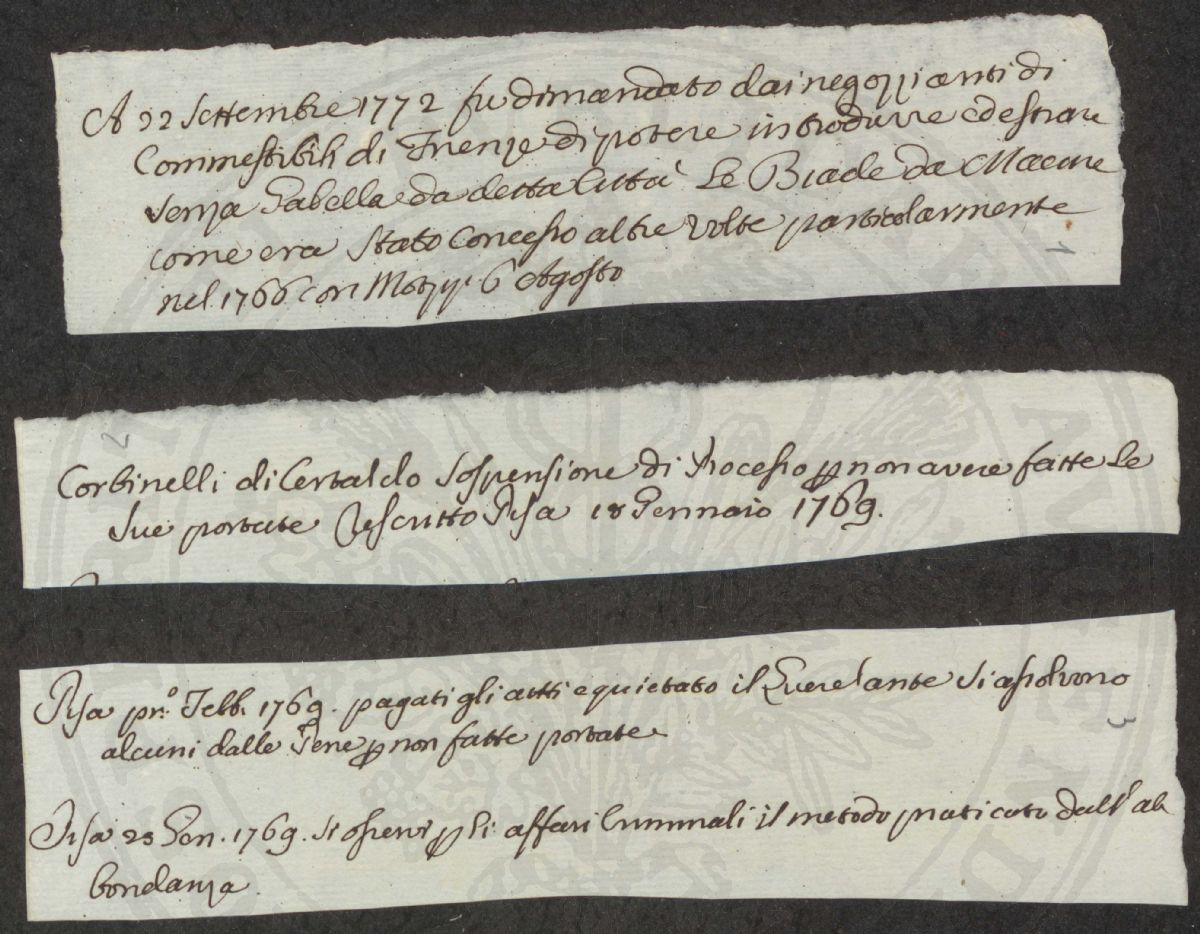 A 22 Settembre 1772 fu dimandato dai negozzianti di
Commestibili di Firenze di potere introdurre ed estrarre
senza Gabella e da detta Città Le Biade da Macine
come era stato Concesso altre volte particolarmente
nel 1766 con Motpp. 6 Agosto
1
2
Corbinelli di Certaldo Sospensione di Processo p non avere fatte Le
sue portate Rescritto Pisa 18 Gennaio 1769.
Pisa pr.º Febb. 1769. pagati gli atti e quietato il Querelante si assolvono
alcuni dalle Pene p non fatte portate
3
Pisa 23 Gen. 1769. si osservi p li affari Criminali il metodo praticato dall' ab
bondanza.